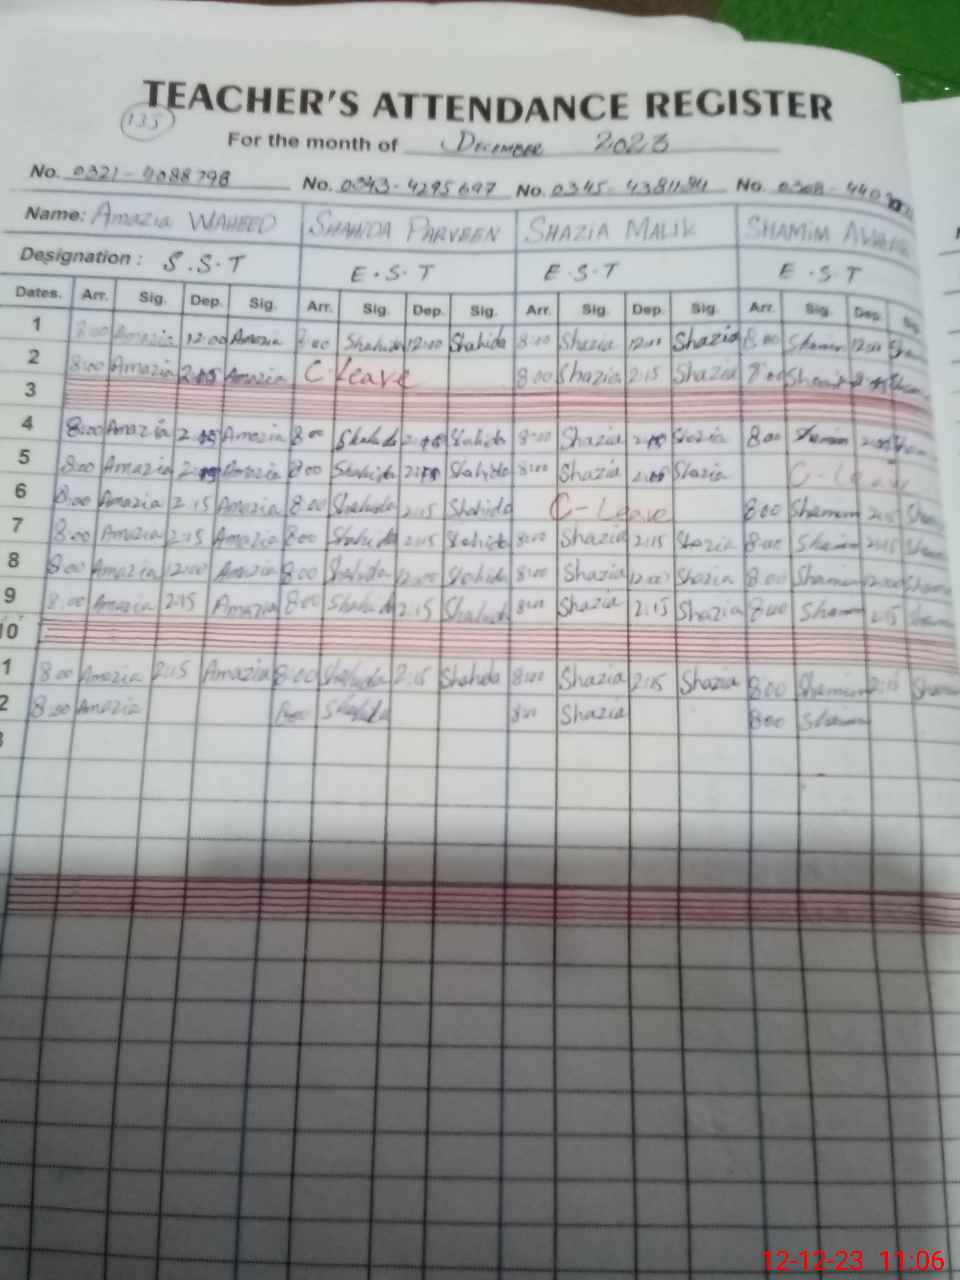 TEACHER'S ATTENDANCE REGISTER
135
For the month of December 2023
No. 0321-4088798 No. 0343-4295697 No. 0345- No.
Name: Amazia WAHEED SHAHIDA PARVEEN SHAZIA MALIK SHAMIM
Designation: S.S.T E.S.T E.S.T E.S.T
Dates. Arr. Sig. Dep. Sig. Arr. Sig. Dep. Sig. Arr. Sig. Dep. Sig. Arr. Sig. Dep.
1 8:00 Amazia 12:00 Amazia 8:00 Shahida 12:00 Shahida 8:00 Shazia 12:00 Shazia 8:00 Shamim 12:00
2 8:00 Amazia 2:15 Amazia C-Leave 8:00 Shazia 2:15 Shazia 8:00 Shamim
3
4 8:00 Amazia 2:15 Amazia 8:00 Shahida 2:15 Shahida 8:00 Shazia 2:15 Shazia 8:00 Shamim
5 8:00 Amazia 2:15 Amazia 8:00 Shahida 2:15 Shahida 8:00 Shazia Shazia C-Leave
6 8:00 Amazia 2:15 Amazia 8:00 Shahida 2:15 Shahida C-Leave 8:00 Shamim 2:15
7 8:00 Amazia 2:15 Amazia 8:00 Shahida 2:15 Shahida 8:00 Shazia 2:15 Shazia 8:00 Shamim 2:15
8 8:00 Amazia 12:00 Amazia 8:00 Shahida 12:00 Shahida 8:00 Shazia 12:00 Shazia 8:00 Shamim 12:00
9 8:00 Amazia 2:15 Amazia 8:00 Shahida 2:15 Shahida 8:00 Shazia 2:15 Shazia 8:00 Shamim 2:15
10
1 8:00 Amazia 2:15 Amazia 8:00 Shahida 2:15 Shahida 8:00 Shazia 2:15 Shazia 8:00 Shamim 2:15
2 8:00 Amazia 8:00 Shahida 8:00 Shazia 8:00 Shamim
12-12-23 11:06